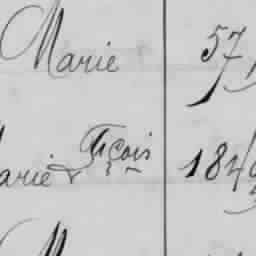 Marie 57
arie & Fçois 184
M